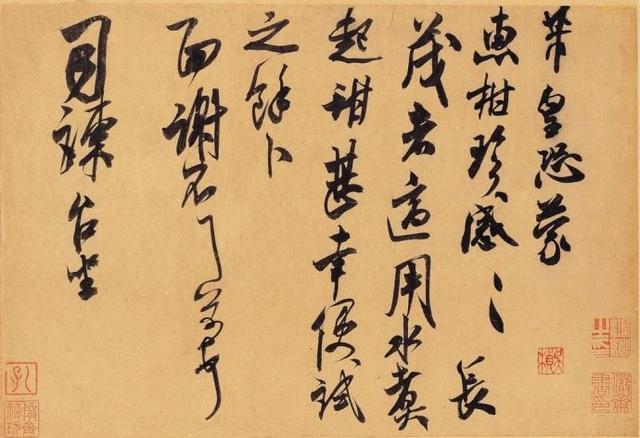 芾皇恐蒙
惠柑珍感〻長
茂者適用水煮
起甜甚幸便試
之餘卜
面謝不芾頓首
司諫台坐